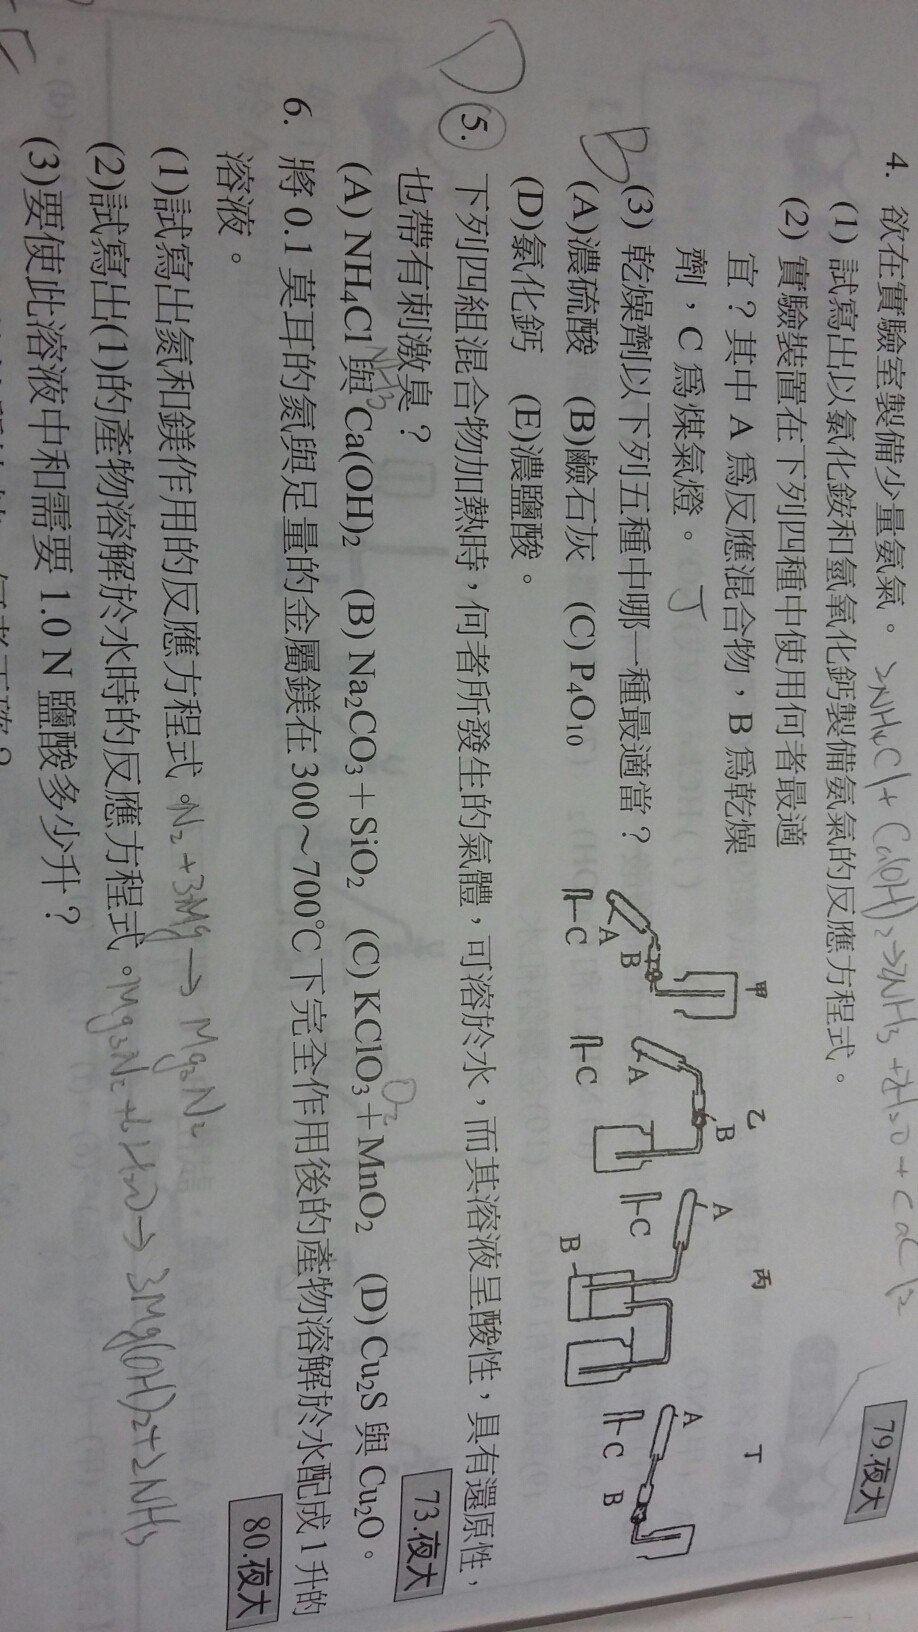 4. 欲在實驗室製備少量氨氣。
79.夜大
(1) 試寫出以氯化銨和氫氧化鈣製備氨氣的反應方程式。
2NH4Cl + Ca(OH)2 → 2NH3 + 2H2O + CaCl2
(2) 實驗裝置在下列四種中使用何者最適
宜？其中 A 為反應混合物，B 為乾燥
劑，C 為煤氣燈。 丁
甲 乙 丙 丁
A B C
A B C
A B C
A B C
B (3) 乾燥劑以下列五種中哪一種最適當？
(A)濃硫酸 (B)鹼石灰 (C) P₄O₁₀
(D)氯化鈣 (E)濃鹽酸。
D 5. 下列四組混合物加熱時，何者所發生的氣體，可溶於水，而其溶液呈酸性，具有還原性，
也帶有刺激臭？
73.夜大
NH3 O2
(A) NH₄Cl 與 Ca(OH)₂ (B) Na₂CO₃＋SiO₂ (C) KClO₃＋MnO₂ (D) Cu₂S 與 Cu₂O。
6. 將 0.1 莫耳的氮與足量的金屬鎂在 300～700°C 下完全作用後的產物溶解於水配成 1 升的
溶液。
80.夜大
(1)試寫出氮和鎂作用的反應方程式。N2 + 3Mg → Mg3N2
(2)試寫出(1)的產物溶解於水時的反應方程式。Mg3N2 + 6H2O → 3Mg(OH)2 + 2NH3
(3)要使此溶液中和需要 1.0 N 鹽酸多少升？